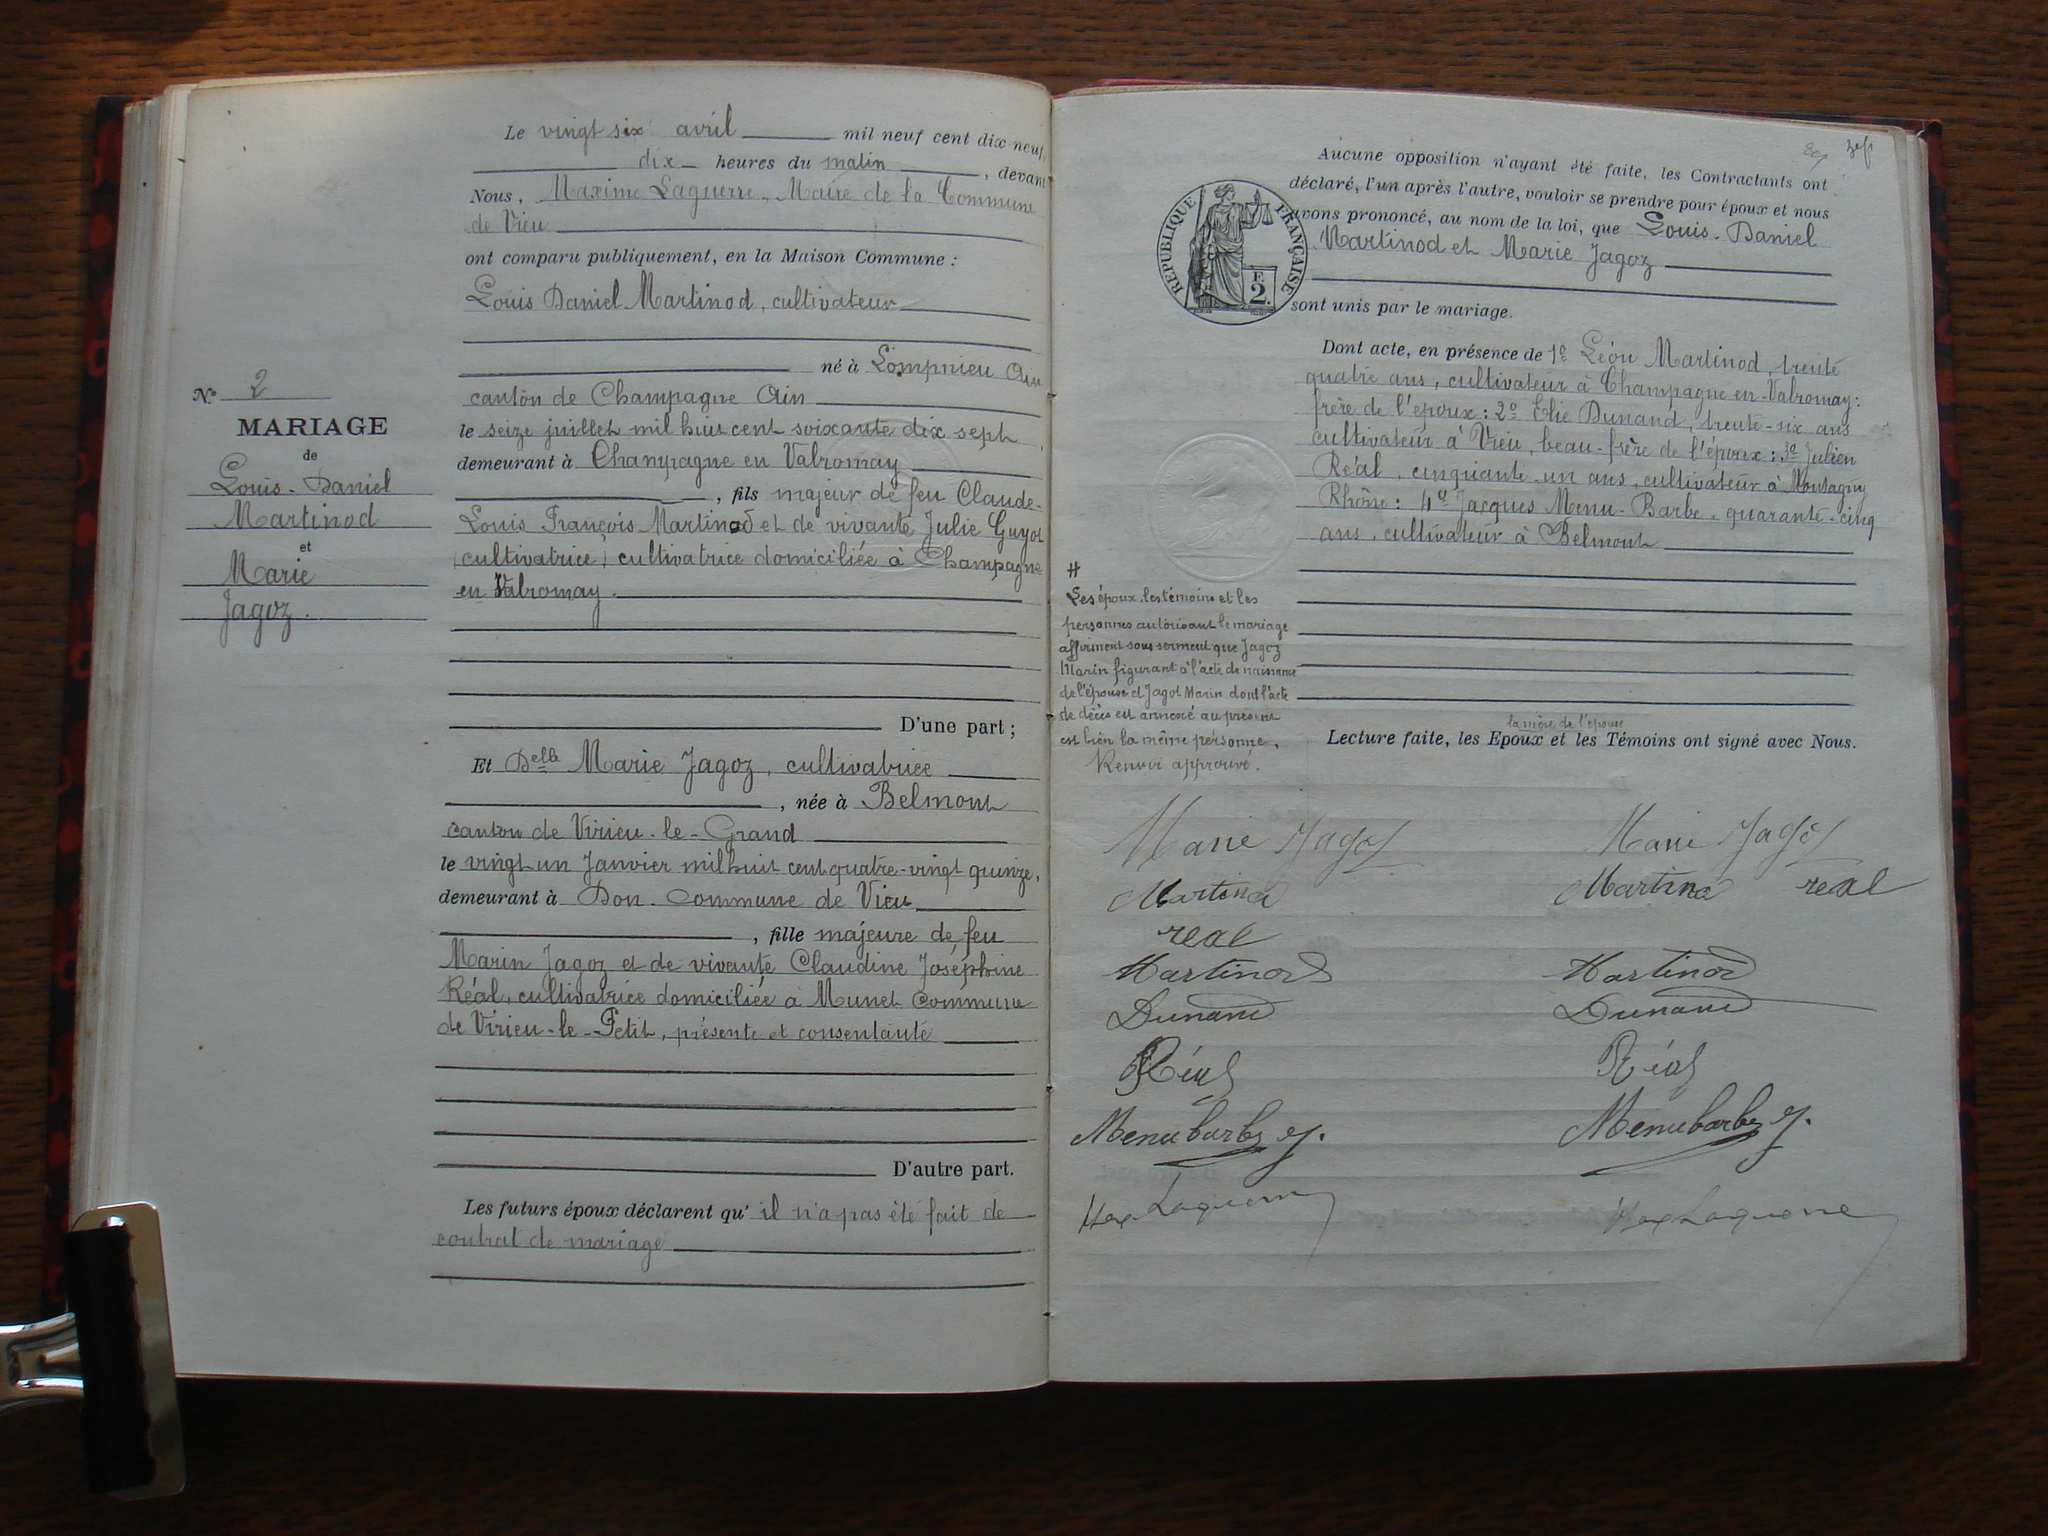 Le vingt six avril mil neuf cent dix neuf,
dix heures du matin, devant
Nous, Maxime Laguerre, Maire de la Commune
de Vieu
ont comparu publiquement, en la Maison Commune :
Louis Daniel Martinod, cultivateur
né à Lompnieu Ain
canton de Champagne Ain
le seize juillet mil huit cent soixante dix sept,
demeurant à Champagne en Valromay
, fils majeur de feu Claude-
Louis François Martinod et de vivante Julie Guyot
(cultivatrice) cultivatrice domiciliée à Champagne
en Valromay.
D'une part ;
Et Delle Marie Jagoz, cultivatrice
, née à Belmont
canton de Virieu-le-Grand
le vingt un Janvier mil huit cent quatre-vingt quinze,
demeurant à Don. Commune de Vieu
, fille majeure de feu
Marin Jagoz et de vivante Claudine Joséphine
Réal, cultivatrice domiciliée à Munet commune
de Virieu-le-Petit, présente et consentante
D'autre part.
Les futurs époux déclarent qu'il n'a pas été fait de
contrat de mariage
N° 2
MARIAGE
de
Louis-Daniel
Martinod
et
Marie
Jagoz.
Aucune opposition n'ayant été faite, les Contractants ont
déclaré, l'un après l'autre, vouloir se prendre pour époux et nous
avons prononcé, au nom de la loi, que Louis-Daniel
Martinod et Marie Jagoz
sont unis par le mariage.
RÉPUBLIQUE FRANÇAISE
F.
2.
Dont acte, en présence de 1° Léon Martinod, trente
quatre ans, cultivateur à Champagne-en-Valromay:
frère de l'époux: 2° Elie Dunand, trente-six ans
cultivateur à Vieu, beau-frère de l'époux: 3° Julien
Réal, cinquante un ans, cultivateur à Montagny
Rhône: 4° Jacques Menu-Barbe, quarante-cinq
ans, cultivateur à Belmont
#
Les époux, les témoins et les
personnes autorisant le mariage
affirment sous serment que Jagoz
Marin figurant à l'acte de naissance
de l'épouse et Jagot Marin dont l'acte
de décès est annexé au présent
est bien la même personne.
Renvoi approuvé.
la mère de l'épouse
Lecture faite, les Epoux et les Témoins ont signé avec Nous.
Marie Jagoz Marie Jagoz
Martinod Martinod real
real
Martinod Martinod
Dunand Dunand
Réal Réal
Menubarbe J. Menubarbe J.
Max Laguerre Max Laguerre